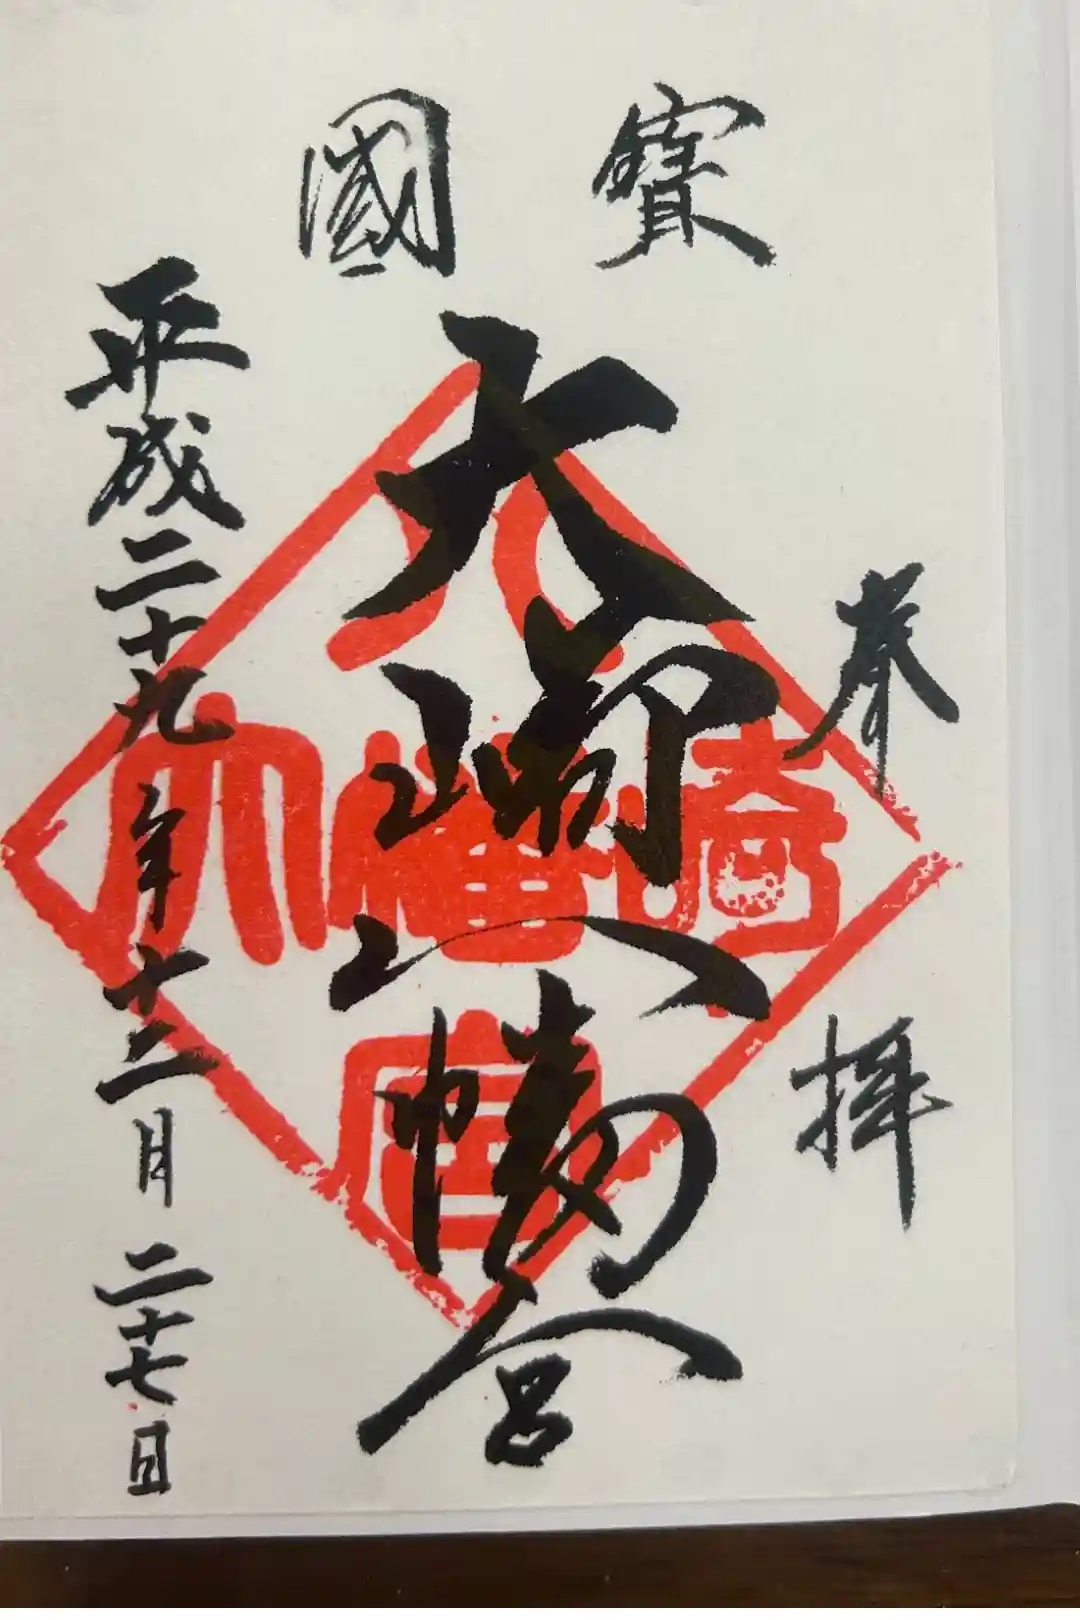 國寶
奉拝
大崎八幡宮
大崎八幡宮
平成二十九年十二月二十七日